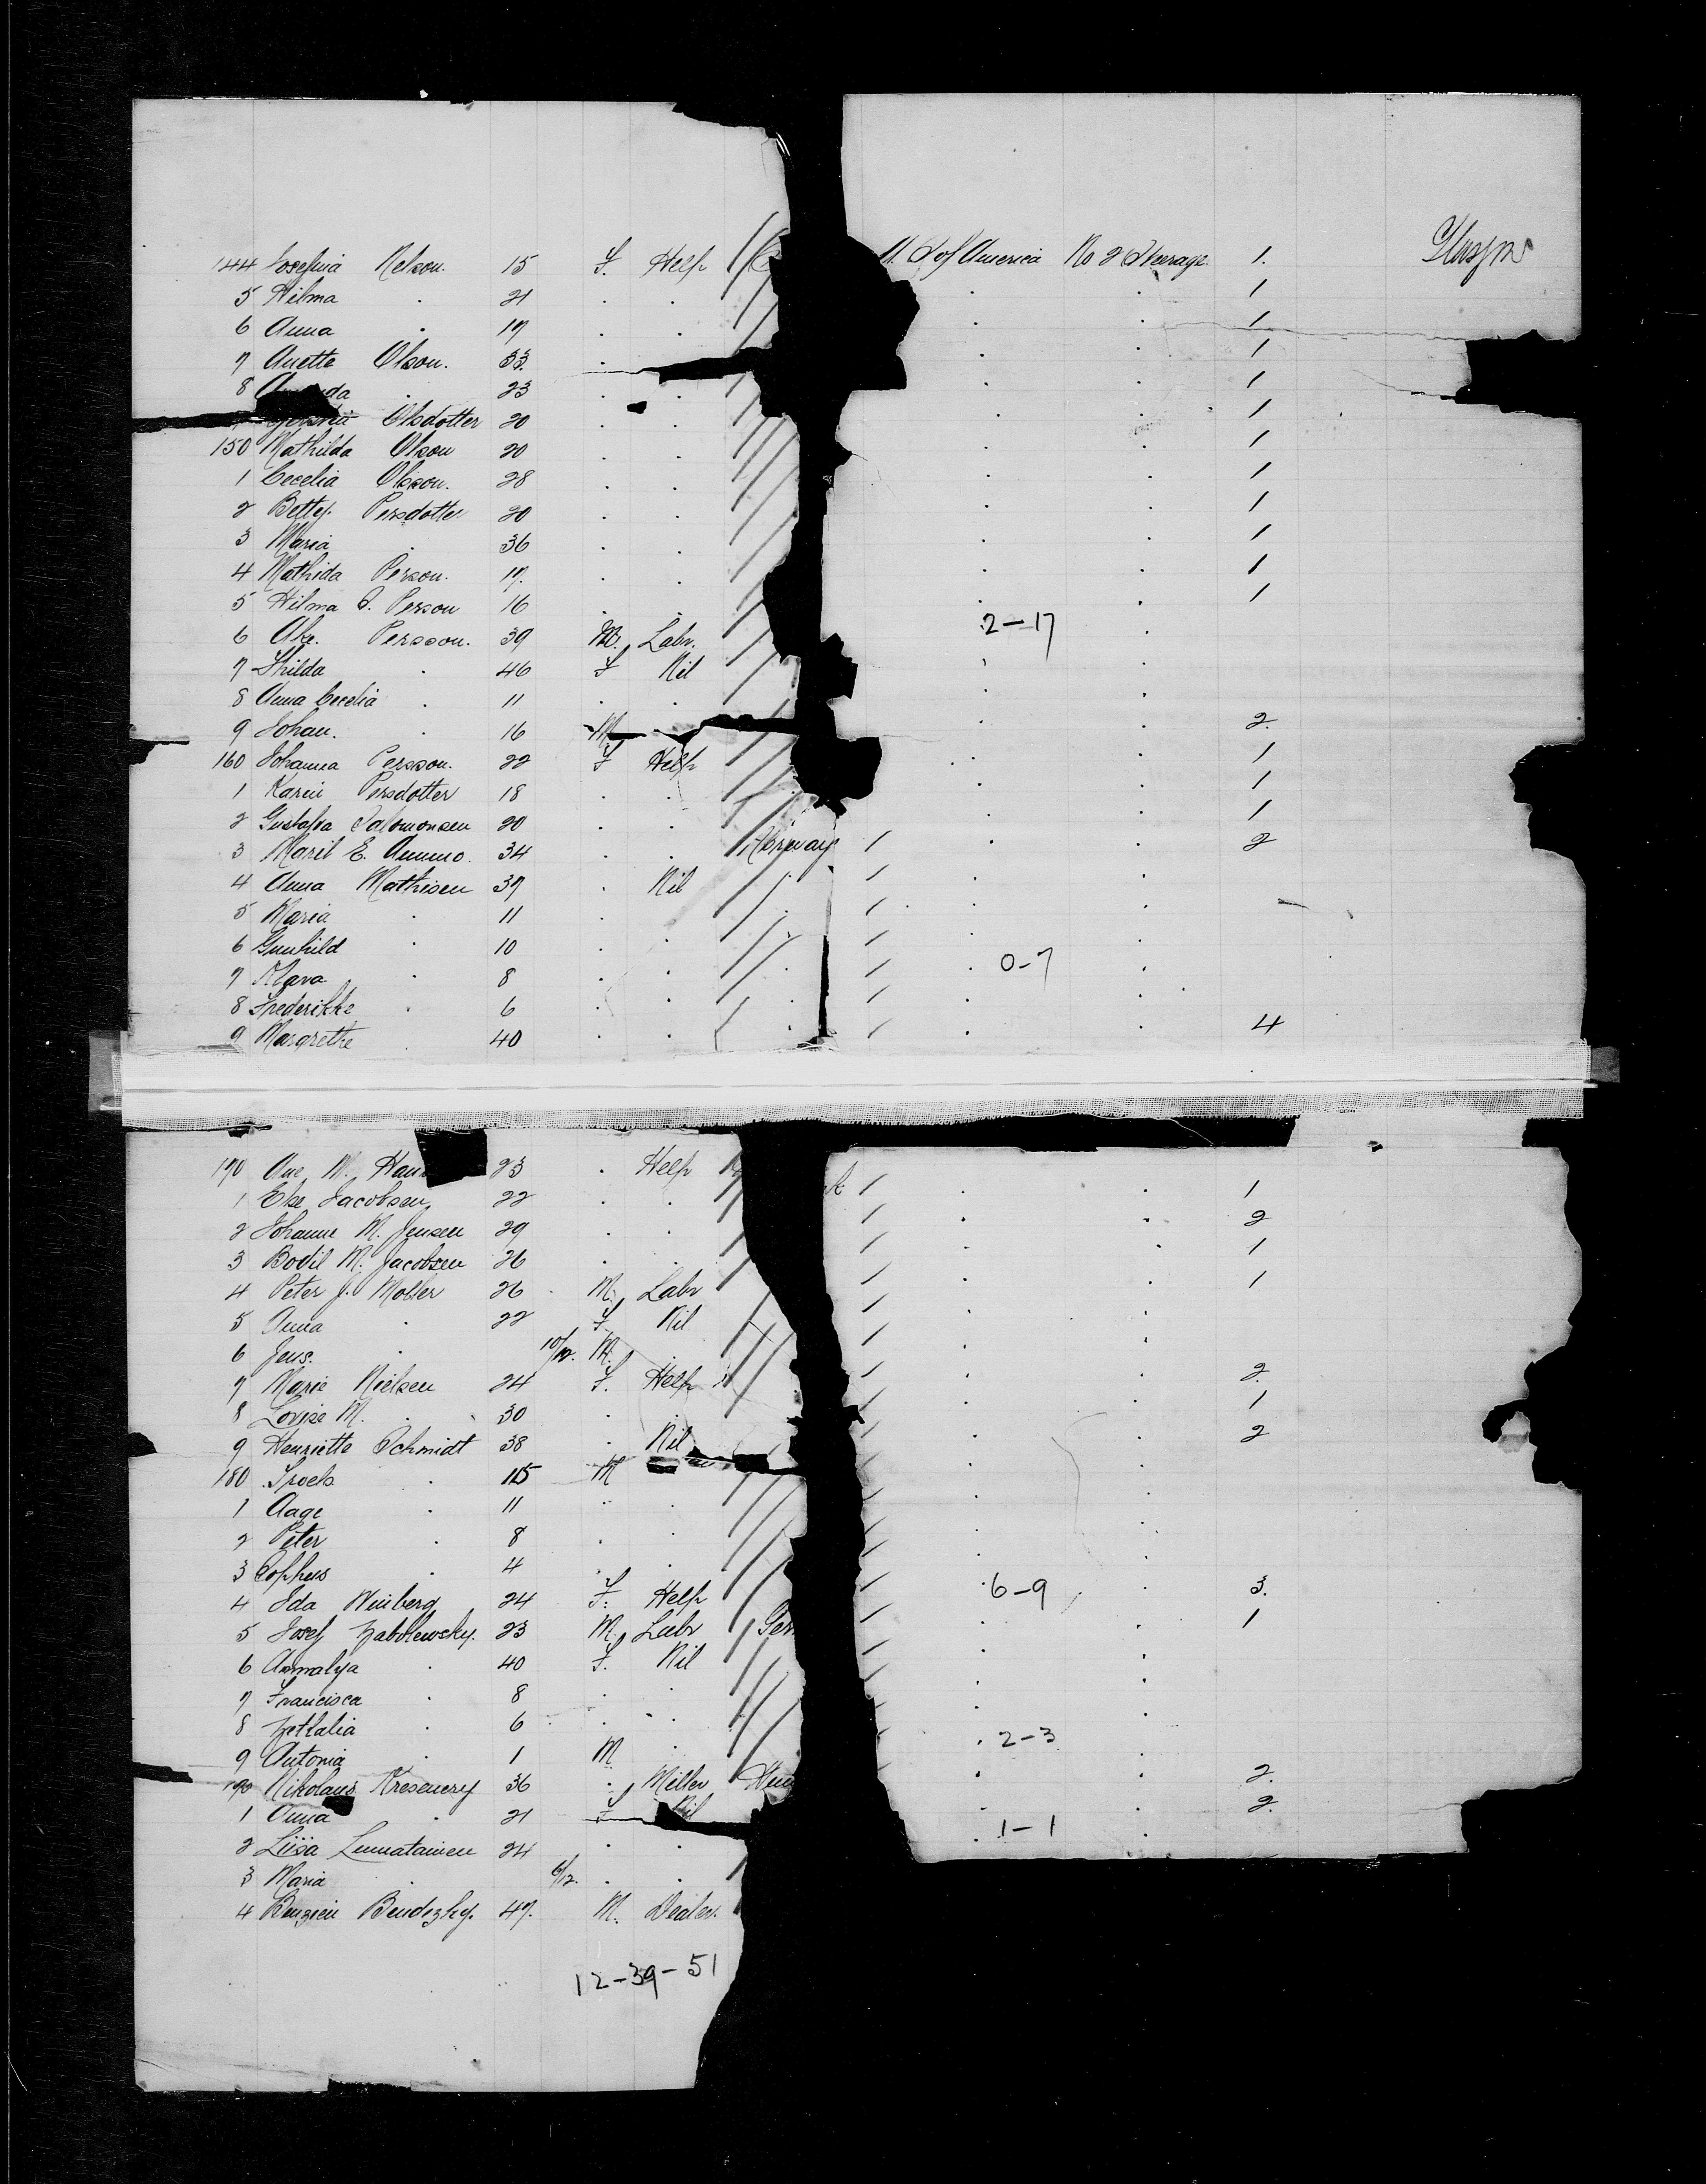 144 Josefina Nelson. 15 F. Help U.S. of America No 2 Steerage 1. Glasgow
5 Hilma . 21 . . . . 1
6 Anna . 17 . . . . 1
7 Anette Olson. 33. . . . 1
8 . 23 . . . . 1
Olsdotter 20 . . . . 1
150 Mathilda Olson 20 . . . . 1
1 Cecelia Olsson. 28 . . . . 1
2 Bettey. Persdotter 20 . . . . 1
3 Maria . 36 . . . . 1
4 Mathida Person. 17. . . . . 1
5 Hilma P. Person 16 . . . . 1
6 Ake. Persson. 39 M. Labr. 2-17 .
7 Thilda . 46 F Nil . .
8 Anna Cecelia . 11 . . . .
9 Johan. . 16 M . . 2.
160 Johanna Persson. 22 F Help . . 1
1 Karin Persdotter 18 . . . . 1
2 Gustafva Salomonsen 20 . . . . 1
3 Maril E. Ammo. 34 . . Norway / . . 2
4 Anna Mathisen 37 . Nil . / . .
5 Maria . 11 . . / . .
6 Gunhild . 10 . . . / . .
7 Klara . 8 . . . / . 0-7 .
8 Frederikke . 6 . . . / . .
9 Margrethe 40 . . . / . . 4
170 Ane M. 23 . Help / . . 1
1 Else Jacobsen 22 . . / . . 2
2 Johanne M. Jensen 29 . . / . . 1
3 Bodil M. Jacobsen 26 . . / . . 1
4 Peter J. Moller 26 M. Labr / . .
5 Anna . 22 F. Nil / . .
6 Jens. . 10/12. M. . / . . 2.
7 Marie Nielsen 24 F. Help / . . 1
8 Lovise M. . 30 . . / . . 2
9 Henriette Schmidt 38 . Nil / . .
180 Troels . 15 M / . .
1 Aage . 11 . . / . .
2 Peter . 8 . . / . .
3 Sophus . 4 . . / . 6-9 . 3.
4 Ida Winberg 24 F. Help / . . 1
5 Josef Zablewsky. 23 M. Labr Ger / . .
6 Anmalya . 40 F. Nil / . .
7 Francisca . 8 . . / . .
8 Zettalia . 6 . . . 2-3 .
9 Antonia . 1 M . . . 2.
190 Nikolaus Kresenery 36 . Miller Hun . . 2.
1 Anna . 21 F Nil . 1-1 .
2 Liisa Lumatainen 24 . .
3 Maria . 6/12. . .
4 Benzien Bendezky. 47. M. Dealer.
12-39-51